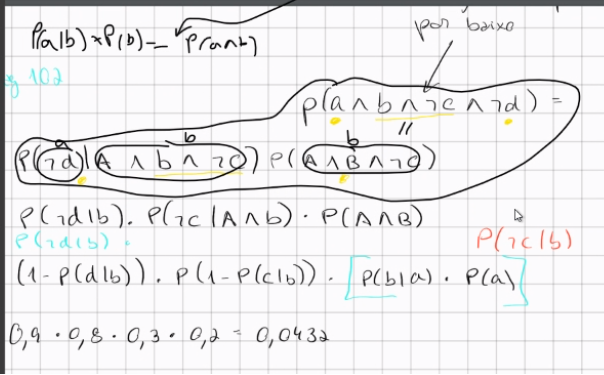 P(a|b) * P(b) = P(a∧b)
por baixo
102
P(a ∧ b ∧ ¬c ∧ ¬d) =
=
a b b
P(¬d|A ∧ b ∧ ¬c) P(A ∧ B ∧ ¬c)
P(¬d|b). P(¬c|A∧b) · P(A∧B)
P(¬d|b) · P(¬c|b)
(1-P(d|b)) . P(1-P(c|b)) · [P(b|a) · P(a)]
0,9 · 0,8 · 0,3 · 0,2 = 0,0432